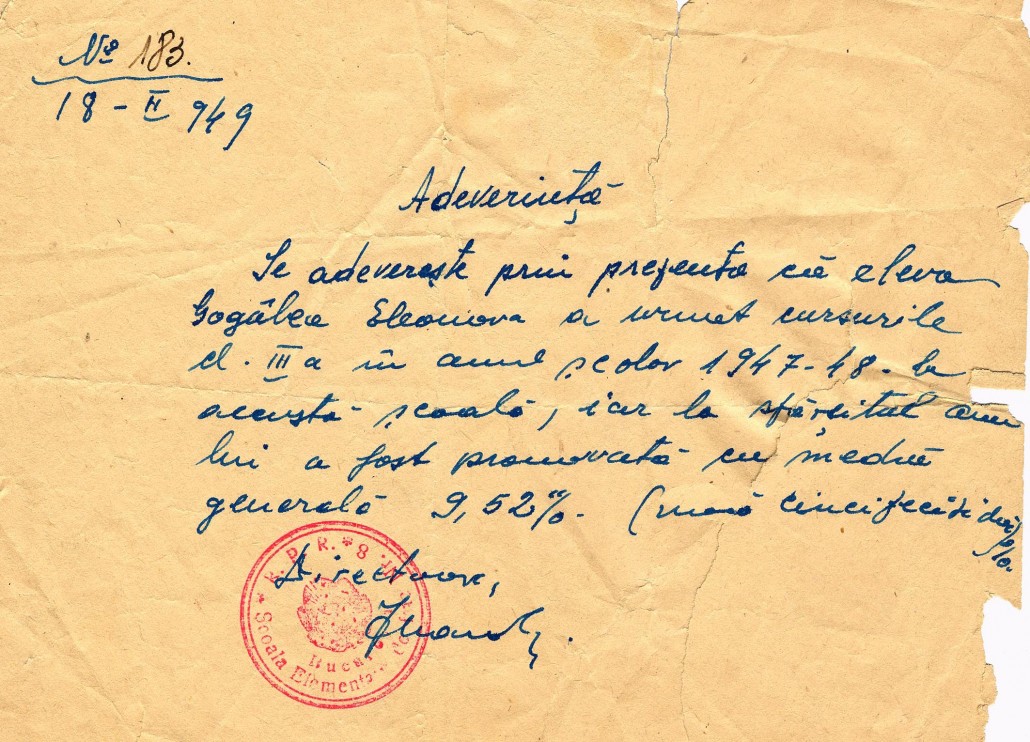 № 183.
18 - II 949
Adeverință
Se adeverește prin prezenta că eleva
Gogâlea Eleonora a urmat cursurile
cl. III a în anul școlar 1947-48. la
această școală, iar la sfârșitul anu
lui a fost promovată cu media
generală 9,52%. (nouă cincizeci și doi)
%.
Directoare,
R. P. R. * 8 *
Școala Elementară
Bucur